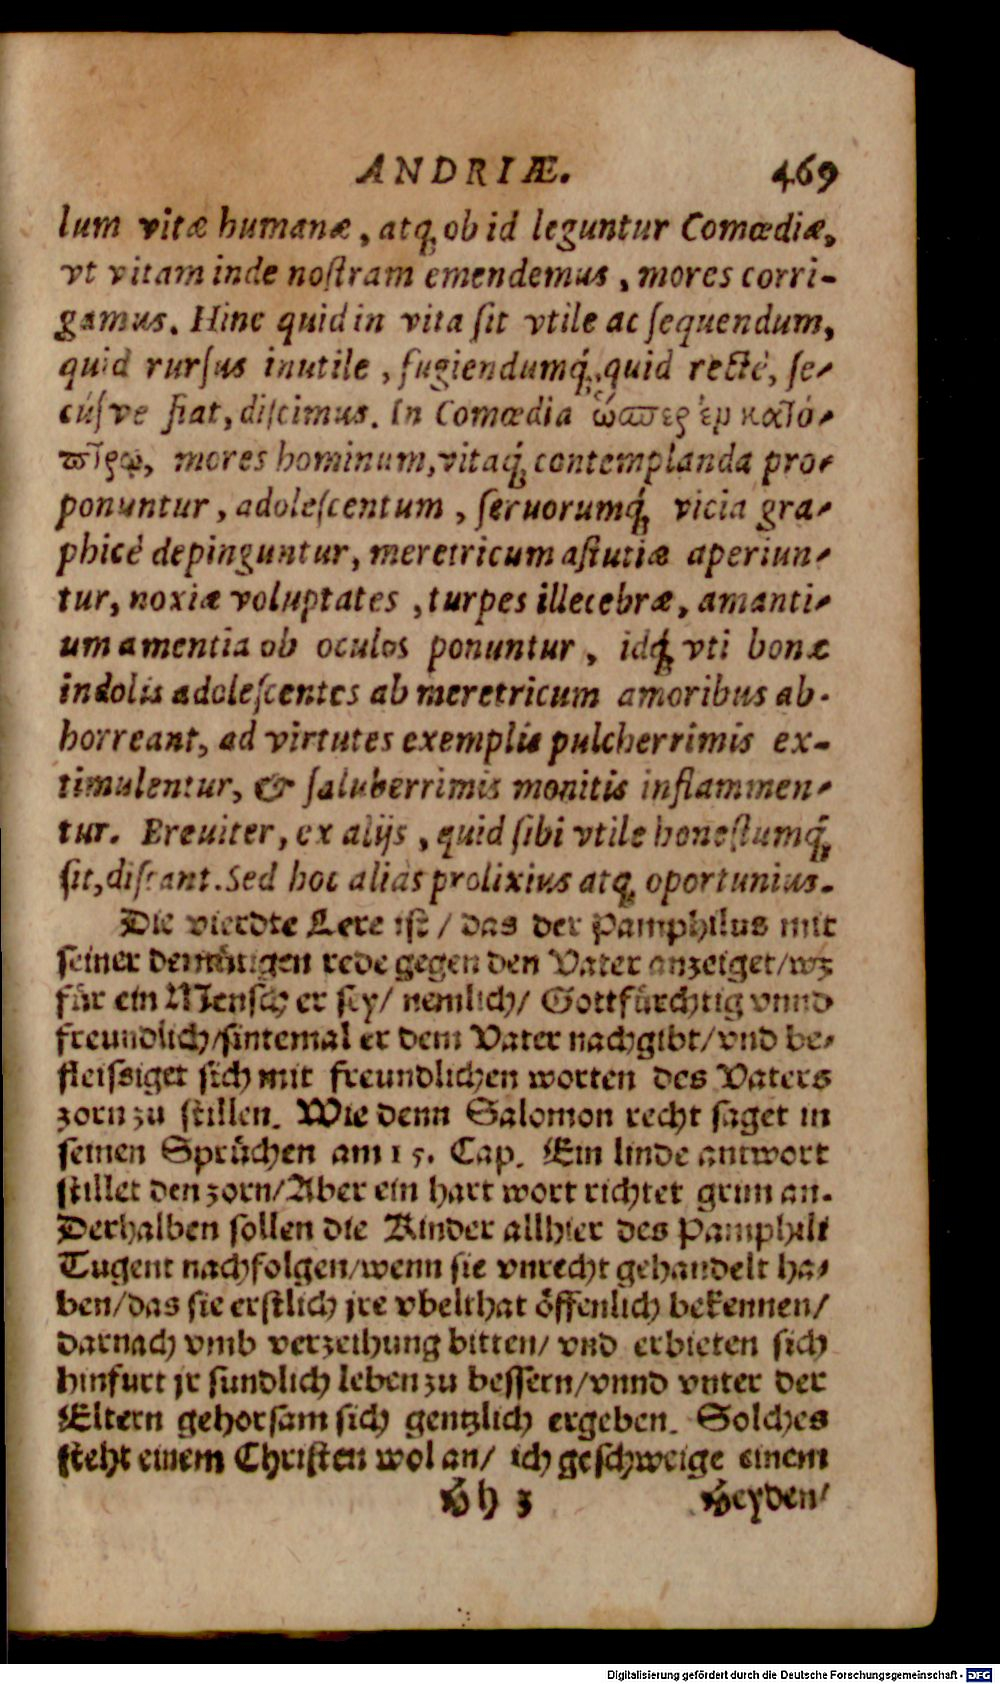 ANDRIÆ. 469
lum vitæ humanæ, atq́ ob id leguntur Comœdiæ,
vt vitam inde noſtram emendemus, mores corri-
gamus. Hinc quid in vita ſit vtile ac ſequendum,
quid rurſus inutile, fugiendumq́, quid rectè, ſe-
cúſve fiat, diſcimus. In Comœdia ὥσπερ ἐν κατό-
πτρῳ, mores hominum, vitaq́ contemplanda pro-
ponuntur, adoleſcentum, ſeruorumq́ vicia gra-
phicè depinguntur, meretricum aſtutiæ aperiun-
tur, noxiæ voluptates, turpes illecebræ, amanti-
um amentia ob oculos ponuntur, idq́ vti bonæ
indolis adoleſcentes ab meretricum amoribus ab-
horreant, ad virtutes exemplis pulcherrimis ex-
timulentur, & ſaluberrimis monitis inflammen-
tur. Breuiter, ex alijs, quid ſibi vtile honeſtumq́
ſit, diſcant. Sed hoc aliàs prolixius atq́ oportunius.
Die vierdte Lere iſt / das der Pamphilus mit
ſeiner demütigen rede gegen den Vater anzeiget / wz
für ein Menſch er ſey / nemlich / Gottfürchtig vnnd
freundlich / ſintemal er dem Vater nachgibt / vnd be-
fleiſsiget ſich mit freundlichen worten des Vaters
zorn zu ſtillen. Wie denn Salomon recht ſaget in
ſeinen Sprüchen am 15. Cap. Ein linde antwort
ſtillet den zorn / Aber ein hart wort richtet grim an.
Derhalben ſollen die Kinder allhier des Pamphili
Tugent nachfolgen / wenn ſie vnrecht gehandelt ha-
ben / das ſie erſtlich jre vbelthat öffenlich bekennen /
darnach vmb verzeihung bitten / vnd erbieten ſich
hinfurt jr ſundlich leben zu beſſern / vnnd vnter der
Eltern gehorſam ſich gentzlich ergeben. Solches
ſteht einem Chriſten wol an / ich geſchweige einem
Hh 3 Heyden /
Digitalisierung gefördert durch die Deutsche Forschungsgemeinschaft - DFG